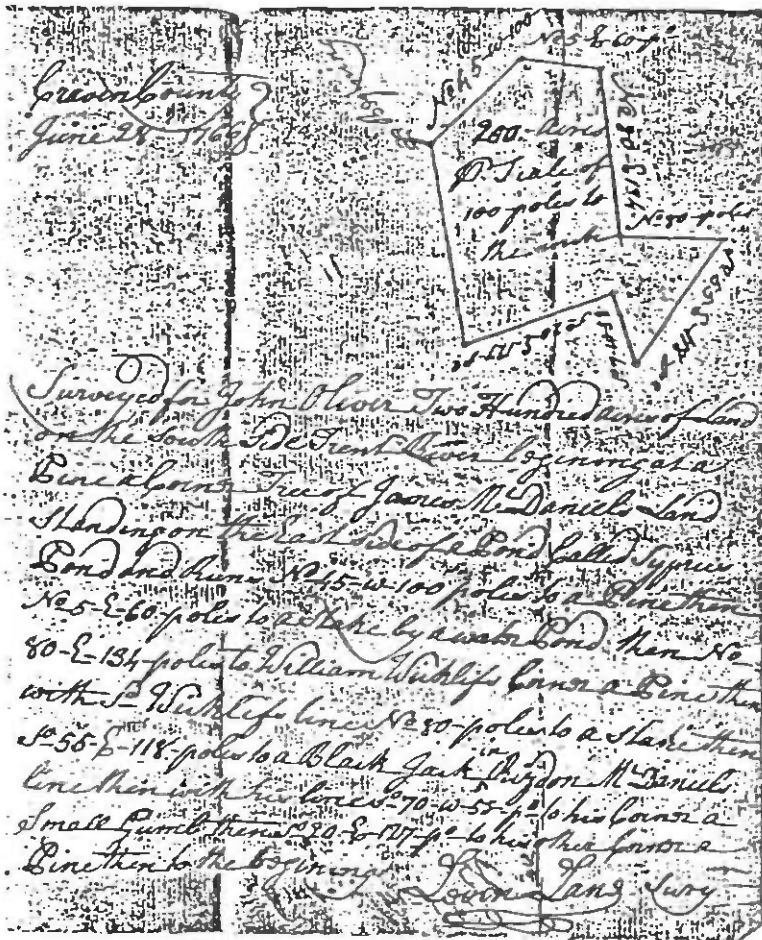 Craven County
June 28 1768
No 45 w 100
No 5 E 60 po
No 80 E 134
No 80 poles
So 55 E 118 po
So 20 E 127 po
200 acres
Pr Scale of
100 poles to
the inch
Surveyed for John Oliver Two Hundred acres of Land
on the South Side Trent River begining at a
Pine a Corner Tree of James McDaniels Land
Standing on the East Side of a Pond Called Syprus
Pond and Runs No 45-w-100 poles to a Pine then
No 5-E-60-poles to a stake by a water Pond then No
80-E-134-poles to William Wickliffs Corner a Pine then
with Sd Wickliffs line No 80-poles to a stake then
So 55-E-118-poles to a Black Jack in Rigdon McDaniels
line then with his line So 70-w-55-po to his Corner a
Small Gumb then So 20-E-127-po to his other Corner a
Pine then to the begining
Levin Lane Survy